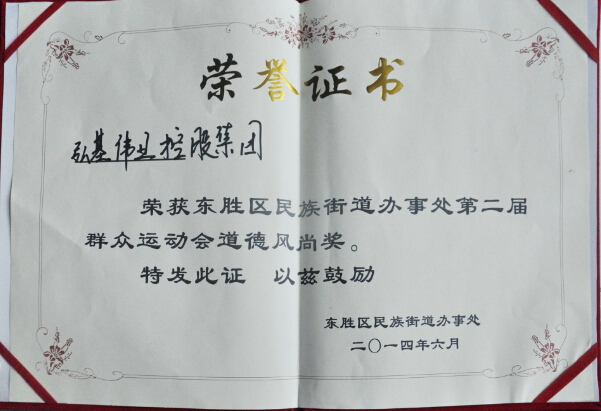 荣誉证书
弘基伟业控股集团
荣获东胜区民族街道办事处第二届
群众运动会道德风尚奖。
特发此证 以兹鼓励
东胜区民族街道办事处
二〇一四年六月